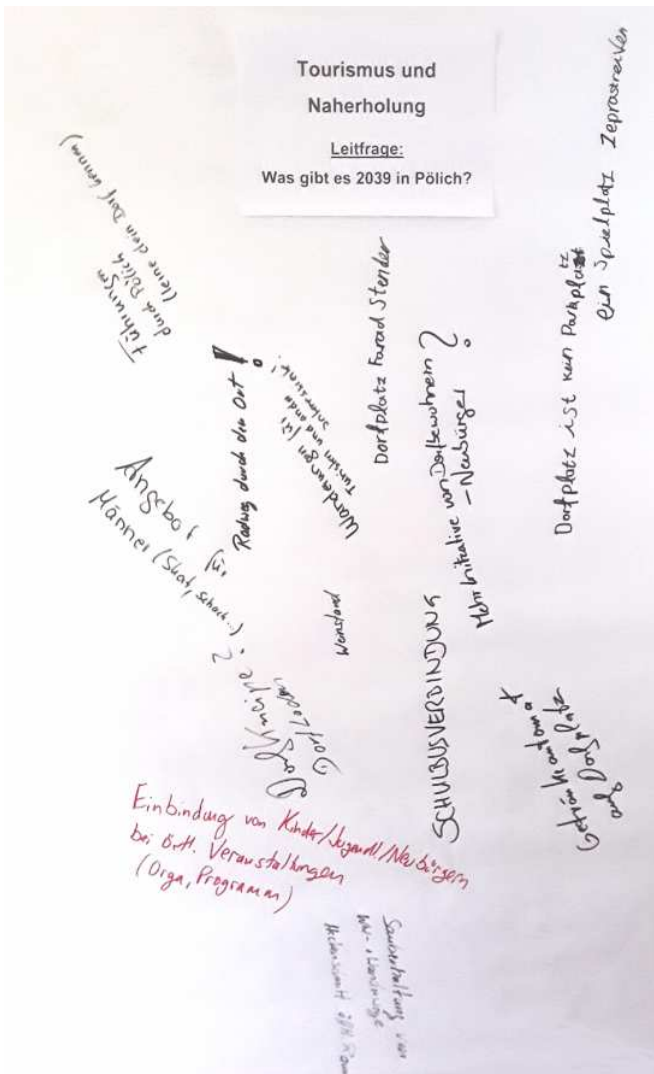 Tourismus und
Naherholung
Leitfrage:
Was gibt es 2039 in Pölich?
Führungen
durch Pölich
(lerne dein Dorf kennen)
Radweg durch den Ort !
Wanderungen für
Turisten und andere
Dorfplatz Farad Stender
Mehr Initiative von Dorfbewohnern ?
– Neubürger
Dorfplatz ist kein Parkplatz
ein Spielplatz Zeprastreifen
Angebot für
Männer (Skat, Schach...)
Weinstand
Dorfkneipe ?
Dorfladen
SCHULBUSVERBINDUNG
Getränkeautomat
auf Dorfplatz
Einbindung von Kinder/Jugendl./Neubürgern
bei örtl. Veranstaltungen
(Orga, Programm)
Sauberhaltung von